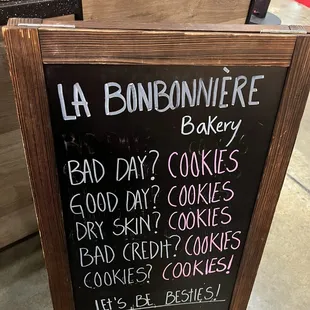 LA BONBONNIÈRE
Bakery
BAD DAY? COOKIES
GOOD DAY? COOKIES
DRY SKIN? COOKIES
BAD CREDIT? COOKIES
COOKIES? COOKIES!
LET'S BE BESTIES!